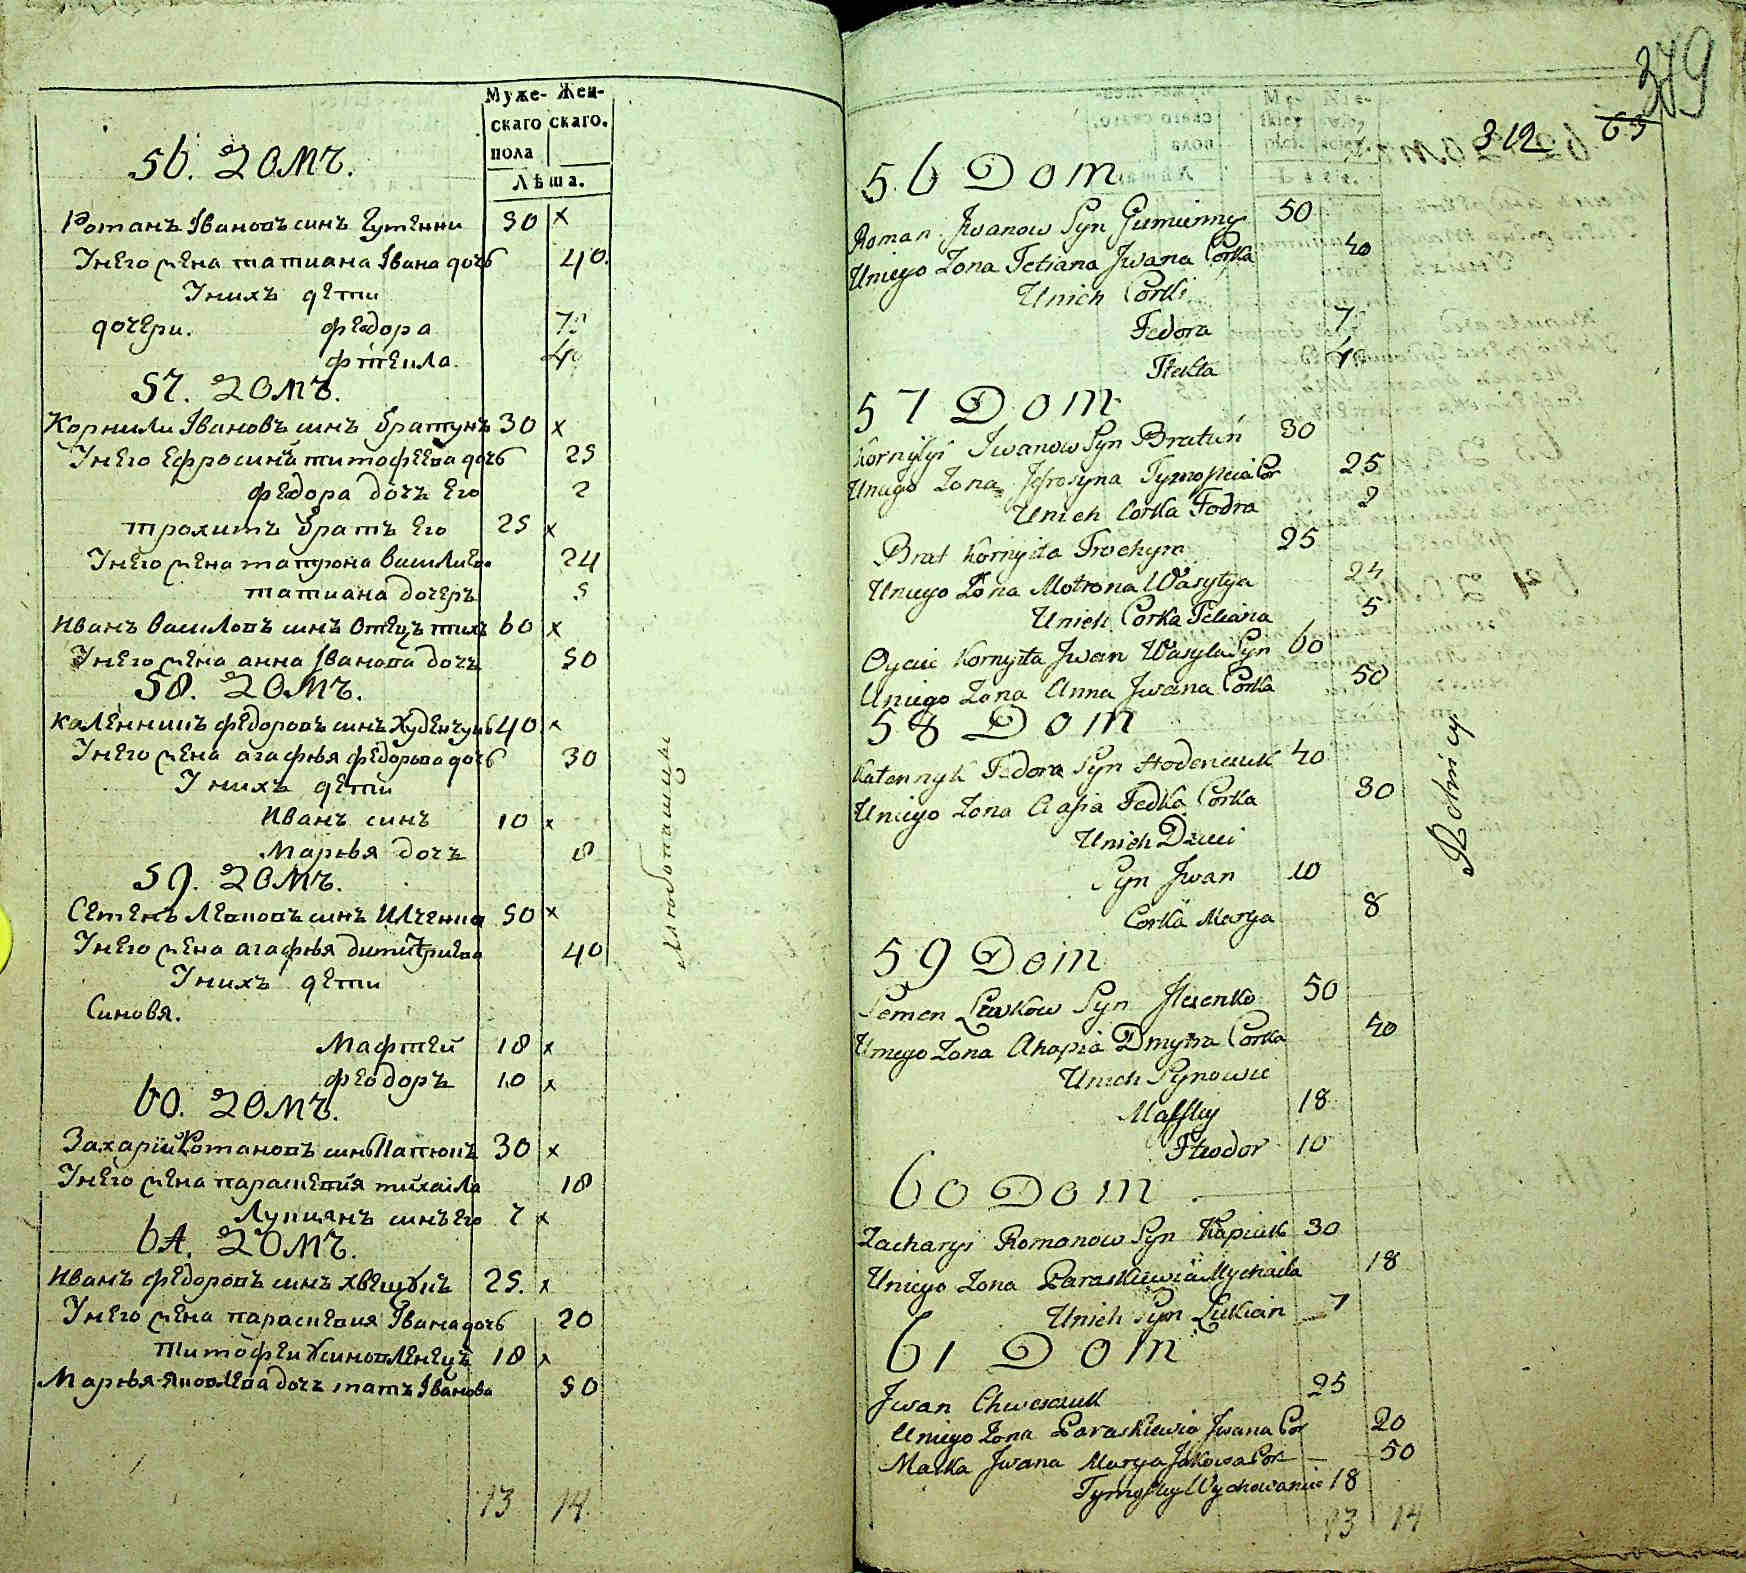 Муже- Жен-
скаго скаго.
пола
Лѣта.
56. домъ.
Романъ Івановъ синъ Гуменни 50 x
Унего жена татиана Івана дочь 40.
Унихъ дети
дочери. федора 7
фтекла. 4
57. домъ.
Корнили Івановъ синъ братунъ 30 x
Унего Ефросиния тимофеева дочь 25
федора дочъ его 2
трохимъ братъ его 25 x
Унего жена матрона василиева 24
татиана дочеръ 5
Иванъ василовъ синъ отецъ тихъ 60 x
Унего жена анна Іванова дочъ 50
58. домъ.
каленникъ федоровъ синъ Худенчукъ 40 x
Унего жена агафия федорова дочь 30
Унихъ дети
Иванъ синъ 10 x
Мария дочъ 8
59. домъ.
Семенъ левковъ синъ Илченко 50 x
Унего жена агафия димитриева 40
Унихъ дети
Синовя.
Мафтей 18 x
феодоръ 10 x
60. домъ.
Захарий Романовъ синъ 30 x
Унего жена параскевия михаила 18
Лукианъ синъ его 7 x
61. домъ.
Иванъ федоровъ синъ хвещукъ 25. x
Унего жена параскевия Івана дочь 20
тимофеи 18 x
Мария яковлева дочъ матъ Іванова 50
13 14
Хлебопашцы
379
312 63
56 Dom
Roman Jwanow Syn Gumienny 50
Uniego Zona Tetiana Jwana Corka 40
Unich Corki
Fedora 7
Ftekla 4
57 Dom
Kornylyi Jwanow Syn Bratuń 30
Uniego Zona Jefrosyna Tymofieia Cor 25
Unich Corka Fodra 2
Brat Kornyila Trochym 25
Uniego Zona Motrona Wasylya 24
Unich Corka Tetiana 5
Oyciec Kornyila Jwan Wasyla Syn 60
Uniego Zona Anna Jwana Corka 50
58 Dom
Kalennyk Fedora Syn Hodenczuk 40
Uniego Zona Aafia Fedka Corka 30
Unich Dzieci
Syn Jwan 10
Corka Marya 8
59 Dom
Semen Lewkow Syn Jlczenko 50
Uniego Zona Ahapia Dmytra Corka 40
Unich Synowie
Maftey 18
Fteodor 10
60 Dom
Zacharyi Romanow Syn 30
Uniego Zona Paraskiewia Mychaila 18
Unich Syn Lukian 7
61 Dom
Jwan Chweszczuk 25
Uniego Zona Paraskiewia Jwana Cor 20
Matka Jwana Marya Jakowa Cor 50
Tymofiey Wychowaniec 18
13 14
Rolnicy